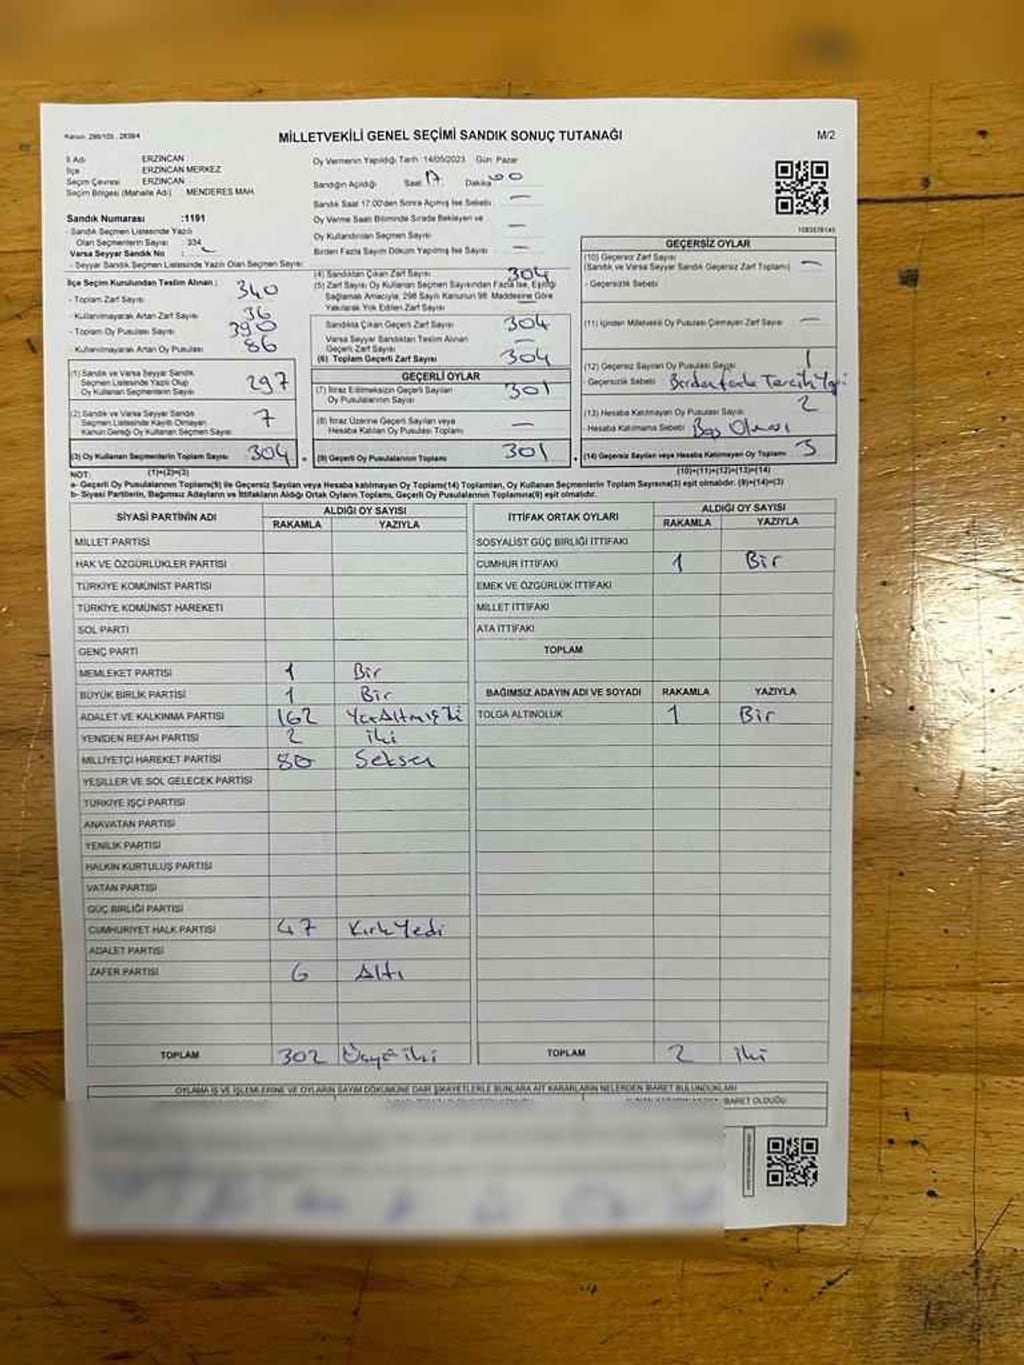 Kanun: 298/105 , 2839/4
MİLLETVEKİLİ GENEL SEÇİMİ SANDIK SONUÇ TUTANAĞI
M/2
İl Adı ERZİNCAN
İlçe ERZİNCAN MERKEZ
Seçim Çevresi ERZİNCAN
Seçim Bölgesi (Mahalle Adı) MENDERES MAH.
Sandık Numarası :1191
- Sandık Seçmen Listesinde Yazılı
Olan Seçmenlerin Sayısı : 334
Varsa Seyyar Sandık No :
- Seyyar Sandık Seçmen Listesinde Yazılı Olan Seçmen Sayısı:
İlçe Seçim Kurulundan Teslim Alınan :
- Toplam Zarf Sayısı 340
- Kullanılmayarak Artan Zarf Sayısı 36
- Toplam Oy Pusulası Sayısı 390
- Kullanılmayarak Artan Oy Pusulası 86
(1) Sandık ve Varsa Seyyar Sandık
Seçmen Listesinde Yazılı Olup
Oy Kullanan Seçmenlerin Sayısı 297
(2) Sandık ve Varsa Seyyar Sandık
Seçmen Listesinde Kayıtlı Olmayan
Kanun Gereği Oy Kullanan Seçmen Sayısı 7
(3) Oy Kullanan Seçmenlerin Toplam Sayısı 304
Oy Vermenin Yapıldığı Tarih :14/05/2023 Gün :Pazar
Sandığın Açıldığı Saat 17 Dakika 00
Sandık Saat 17.00'den Sonra Açılmış İse Sebebi —
Oy Verme Saati Bitiminde Sırada Bekleyen ve
Oy Kullandırılan Seçmen Sayısı —
Birden Fazla Sayım Döküm Yapılmış İse Sayısı —
(4) Sandıktan Çıkan Zarf Sayısı 304
(5) Zarf Sayısı Oy Kullanan Seçmen Sayısından Fazla İse, Eşitliği
Sağlamak Amacıyla; 298 Sayılı Kanunun 98. Maddesine Göre
Yakılarak Yok Edilen Zarf Sayısı —
Sandıkta Çıkan Geçerli Zarf Sayısı 304
Varsa Seyyar Sandıktan Teslim Alınan
Geçerli Zarf Sayısı —
(6) Toplam Geçerli Zarf Sayısı 304
GEÇERLİ OYLAR
(7) İtiraz Edilmeksizin Geçerli Sayılan
Oy Pusulalarının Sayısı 301
(8) İtiraz Üzerine Geçerli Sayılan veya
Hesaba Katılan Oy Pusulası Toplamı —
(9) Geçerli Oy Pusulalarının Toplamı 301
GEÇERSİZ OYLAR
(10) Geçersiz Zarf Sayısı
(Sandık ve Varsa Seyyar Sandık Geçersiz Zarf Toplamı) —
- Geçersizlik Sebebi
(11) İçinden Milletvekili Oy Pusulası Çıkmayan Zarf Sayısı —
(12) Geçersiz Sayılan Oy Pusulası Sayısı 1
Geçersizlik Sebebi Birden fazla Tercih
(13) Hesaba Katılmayan Oy Pusulası Sayısı 2
- Hesaba Katılmama Sebebi Boş Olması
(14) Geçersiz Sayılan veya Hesaba Katılmayan Oy Toplamı 3
NOT: (1)+(2)=(3) (10)+(11)+(12)+(13)=(14)
a- Geçerli Oy Pusulalarının Toplamı(9) ile Geçersiz Sayılan veya Hesaba Katılmayan Oy Toplamı(14) Toplamları, Oy Kullanan Seçmenlerin Toplam Sayısına(3) eşit olmalıdır. (9)+(14)=(3)
b- Siyasi Partilerin, Bağımsız Adayların ve İttifakların Aldığı Ortak Oyların Toplamı, Geçerli Oy Pusulalarının Toplamına(9) eşit olmalıdır.
SİYASİ PARTİNİN ADI ALDIĞI OY SAYISI
RAKAMLA YAZIYLA
MİLLET PARTİSİ
HAK VE ÖZGÜRLÜKLER PARTİSİ
TÜRKİYE KOMÜNİST PARTİSİ
TÜRKİYE KOMÜNİST HAREKETİ
SOL PARTİ
GENÇ PARTİ
MEMLEKET PARTİSİ 1 Bir
BÜYÜK BİRLİK PARTİSİ 1 Bir
ADALET VE KALKINMA PARTİSİ 162
YENİDEN REFAH PARTİSİ 2 iki
MİLLİYETÇİ HAREKET PARTİSİ 80 Seksen
YEŞİLLER VE SOL GELECEK PARTİSİ
TÜRKİYE İŞÇİ PARTİSİ
ANAVATAN PARTİSİ
YENİLİK PARTİSİ
HALKIN KURTULUŞ PARTİSİ
VATAN PARTİSİ
GÜÇ BİRLİĞİ PARTİSİ
CUMHURİYET HALK PARTİSİ 47 Kırk Yedi
ADALET PARTİSİ
ZAFER PARTİSİ 6 Altı
TOPLAM 302 Üçyüz iki
İTTİFAK ORTAK OYLARI ALDIĞI OY SAYISI
RAKAMLA YAZIYLA
SOSYALİST GÜÇ BİRLİĞİ İTTİFAKI
CUMHUR İTTİFAKI 1 Bir
EMEK VE ÖZGÜRLÜK İTTİFAKI
MİLLET İTTİFAKI
ATA İTTİFAKI
TOPLAM
BAĞIMSIZ ADAYIN ADI VE SOYADI RAKAMLA YAZIYLA
TOLGA ALTINOLUK 1 Bir
TOPLAM 2 iki
OYLAMA İŞ VE İŞLEMLERİNE VE OYLARIN SAYIM DÖKÜMÜNE DAİR ŞİKAYETLERLE BUNLARA AİT KARARLARIN NELERDEN İBARET BULUNDUKLARI